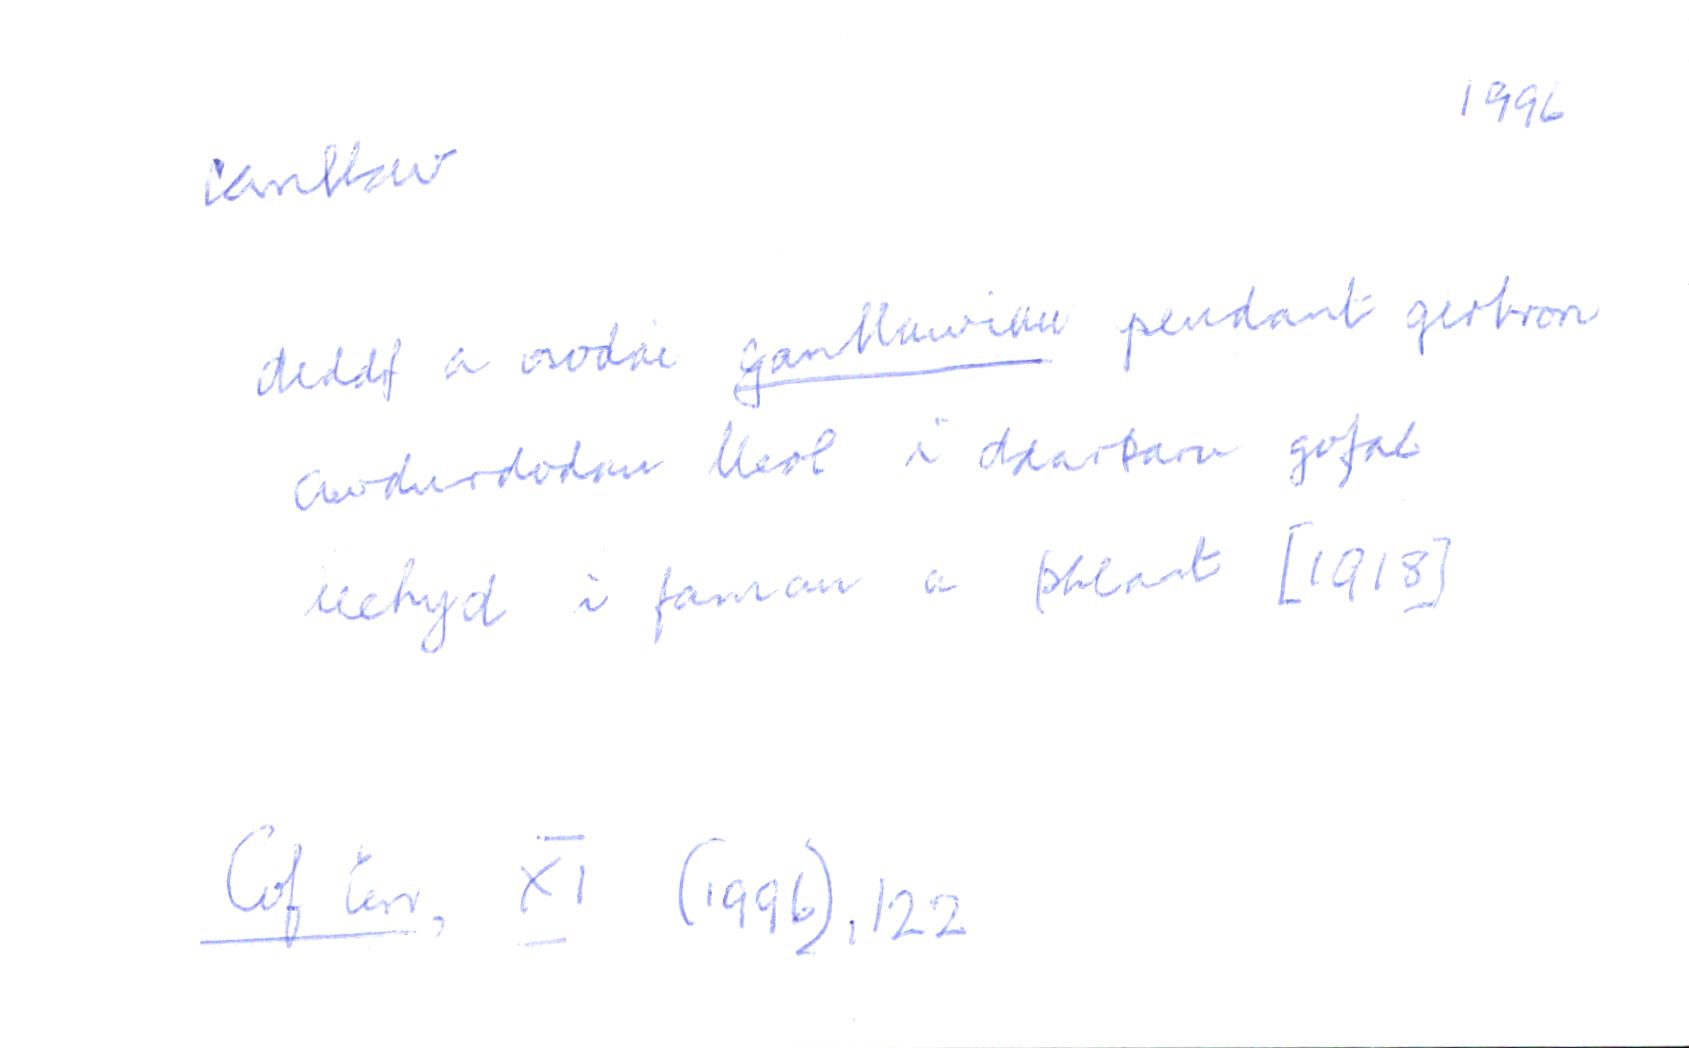 1996
canllaw
deddf a osodai ganllawiau pendant gerbron
awdurdodau lleol i ddarparu gofal
iechyd i famau a phlant [1918]
Cof Cen, XI (1996), 122